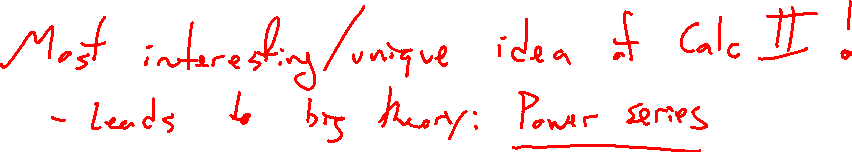 Most interesting/unique idea of Calc II!
- Leads to big theory: Power series